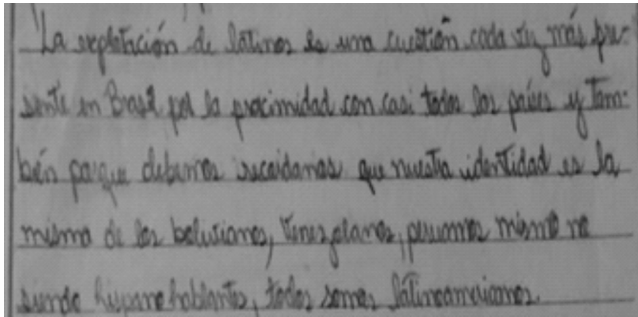 La explotación de latinos es una cuestión cada vez más pre-
sente en Brasil por la procimidad con casi todos los países y tam-
bién porque debemos recordarnos que nuestra identidad es la
misma de los bolivianos, venezolanos, peruanos mismo no
siendo hispanohablantes, todos somos latinoamericanos.